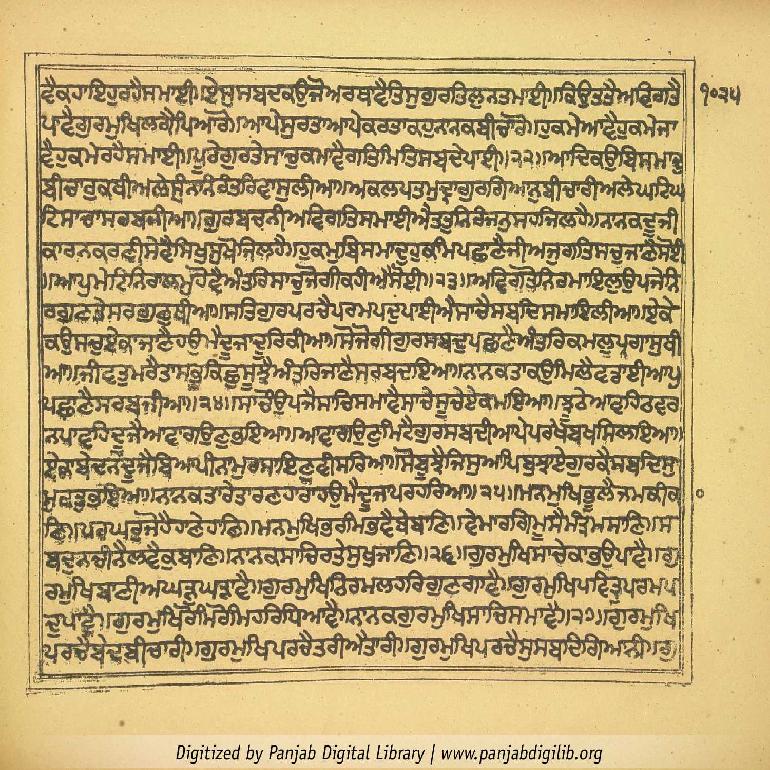 ਵੈਕਹਾਇਹੁਰਹੈਸਮਾਈ॥ਏਸੁਸਬਦਕਉਜੋਅਰਥਾਵੈਤਿਸੁਗੁਰਤਿਲੁਨਤਮਾਈ॥ਕਿਉਤਤੈਅਵਿਗਤੈ
੧੦੨੫
ਪਾਵੈਗੁਰਮੁਖਿਲਗੈਪਿਆਰੋ॥ਆਪੇਸੁਰਤਾਆਪੇਕਰਤਾਕਹੁਨਾਨਕਬੀਚਾਰੋ॥ਹੁਕਮੇਆਵੈਹੁਕਮੇਜਾ
ਵੈਹੁਕਮੇਰਹੈਸਮਾਈ॥ਪੂਰੇਗੁਰਤੇਸਾਚੁਕਮਾਵੈਗਤਿਮਿਤਿਸਬਦੇਪਾਈ॥੨੨॥ਆਦਿਕਉਬਿਸਮਾਦੁ
ਬੀਚਾਰੁਕਥੀਅਲੇਸੁੰਨਨਿਰੰਤਰਿਵਾਸੁਲੀਆ॥ਅਕਲਪਤਮੁਦ੍ਰਾਗੁਰਗਿਆਨੁਬੀਚਾਰੀਅਲੇਘਟਿਘ
ਟਿਸਾਚਾਸਰਬਜੀਆ॥ਗੁਰਬਚਨੀਅਵਿਗਤਿਸਮਾਈਐਤਤੁਨਿਰੰਜਨੁਸਹਜਿਲਹੈ॥ਨਾਨਕਦੂਜੀ
ਕਾਰਨਕਰਣੀਸੇਵੈਸਿਖੁਸੁਖੋਜਿਲਹੈ॥ਹੁਕਮੁਬਿਸਮਾਦੁਹੁਕਮਿਪਛਾਣੈਜੀਅਜੁਗਤਿਸਚੁਜਾਣੈਸੋਈ
॥ਆਪੁਮੇਟਿਨਿਰਾਲਮੁਹੋਵੈਅੰਤਰਿਸਾਚੁਜੋਗੀਕਹੀਐਸੋਈ॥੨੩॥ਅਵਿਗਤੋਨਿਰਮਾਇਲੁਉਪਜੇਨਿ
ਰਗੁਣਤੇਸਰਗੁਣੁਥੀਆ॥ਸਤਿਗੁਰਪਰਚੈਪਰਮਪਦੁਪਾਈਐਸਾਚੈਸਬਦਿਸਮਾਇਲੀਆ॥ਏਕੇ
ਕਉਸਚੁਏਕਾਜਾਣੈਹਉਮੈਦੂਜਾਦੂਰਿਕੀਆ॥ਸੋਜੋਗੀਗੁਰਸਬਦੁਪਛਾਣੈਅੰਤਰਿਕਮਲੁਪ੍ਰਗਾਸੁਥੀ
ਆ॥ਜੀਵਤੁਮਰੈਤਾਸਭੁਕਿਛੁਸੂਝੈਅੰਤਰਿਜਾਣੈਸਰਬਦਇਆ॥ਨਾਨਕਤਾਕਉਮਿਲੈਵਡਾਈਆਪੁ
ਪਛਾਣੈਸਰਬਜੀਆ॥੨੪॥ਸਾਚੌਉਪਜੈਸਾਚਿਸਮਾਵੈਸਾਚੇਸੂਚੇਏਕਮਇਆ॥ਝੂਠੇਆਵਹਿਠਵਰ
ਨਪਾਵਹਿਦੂਜੈਆਵਾਗਉਣੁਭਇਆ॥ਆਵਾਗਉਣੁਮਿਟੈਗੁਰਸਬਦੀਆਪੇਪਰਖੈਬਖਸਿਲਇਆ॥
ਏਕਾਬੇਦਨਦੂਜੈਬਿਆਪੀਨਾਮੁਰਸਾਇਣੁਵੀਸਰਿਆ॥ਸੋਬੂਝੈਜਿਸੁਆਪਿਬੁਝਾਏਗੁਰਕੈਸਬਦਿਸੁ
ਮੁਕਤੁਭਇਆ॥ਨਾਨਕਤਾਰੇਤਾਰਣਹਾਰਾਹਉਮੈਦੂਜਾਪਰਹਰਿਆ॥੨੫॥ਮਨਮੁਖਿਭੂਲੈਜਮਕੀਕਾ
ਣਿ॥ਪਰਘਰੁਜੋਹੈਹਾਣੇਹਾਣਿ॥ਮਨਮੁਖਿਭਰਮਿਭਵੈਬੇਬਾਣਿ॥ਵੇਮਾਰਗਿਮੂਸੈਮੰਤ੍ਰਿਮਸਾਣਿ॥ਸ
ਬਦੁਨਚੀਨੈਲਵੈਕੁਬਾਣਿ॥ਨਾਨਕਸਾਚਿਰਤੇਸੁਖੁਜਾਣਿ॥੨੬॥ਗੁਰਮੁਖਿਸਾਚੇਕਾਭਉਪਾਵੈ॥ਗੁ
ਰਮੁਖਿਬਾਣੀਅਘੜੁਘੜਾਵੈ॥ਗੁਰਮੁਖਿਨਿਰਮਲਹਰਿਗੁਣਗਾਵੈ॥ਗੁਰਮੁਖਿਪਵਿਤ੍ਰੁਪਰਮਪ
ਦੁਪਾਵੈ॥ਗੁਰਮੁਖਿਰੋਮਿਰੋਮਿਹਰਿਧਿਆਵੈ॥ਨਾਨਕਗੁਰਮੁਖਿਸਾਚਿਸਮਾਵੈ॥੨੭॥ਗੁਰਮੁਖਿ
ਪਰਚੈਬੇਦਬੀਚਾਰੀ॥ਗੁਰਮੁਖਿਪਰਚੈਤਰੀਐਤਾਰੀ॥ਗੁਰਮੁਖਿਪਰਚੈਸੁਸਬਦਿਗਿਆਨੀ॥ਗੁ
Digitized by Panjab Digital Library | www.panjabdigilib.org